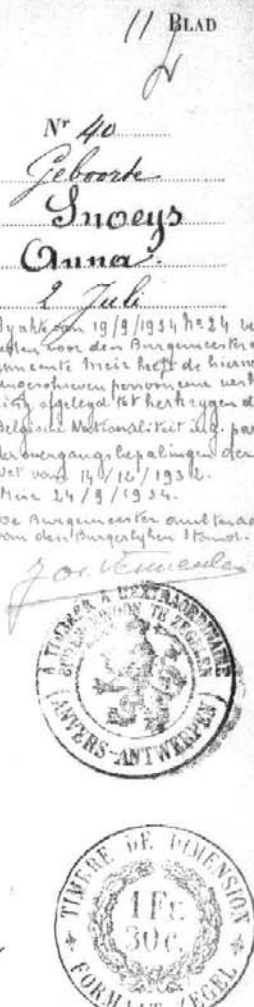 11 BLAD
Nr 40
Geboorte
Snoeys
Anna.
2 Juli
By akte van 19/9/1934 No 24 ver
leden voor den Burgemeester
gemeente Meir heeft de hierne
persoon eene verk
ing afgelegd tot herkrygen d
Belgische Nationaliteit ing. par
der overgangsbepalingen der
Wet van 14/12/1932.
Meir 24/9/1934.
De Burgemeester ambtenaa
van den Burgerlyken Stand.
Jos. Vermeulen
A TIMBRER A L'EXTRAORDINAIRE
BUITENGEWOON TE ZEGELEN
ANVERS-ANTWERPEN
TIMBRE DE DIMENSION
1 Fr.
30 c.
FORMAAT ZEGEL